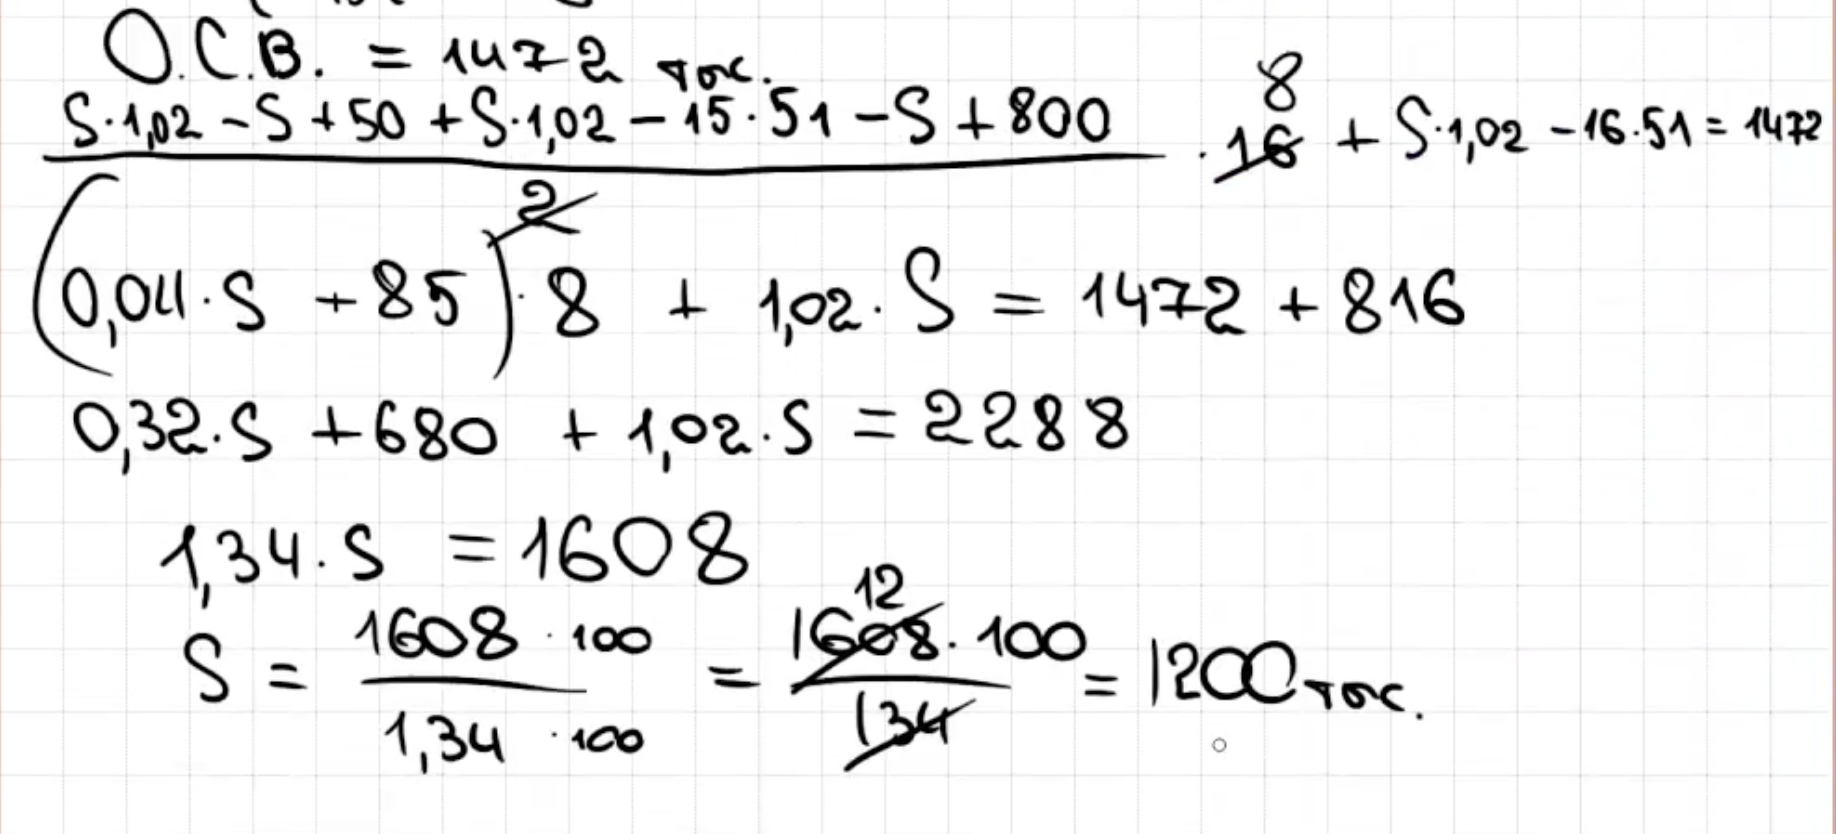 О.С.В. = 1472 тыс.
S·1,02 - S + 50 + S·1,02 - 15·51 - S + 800 / 2 · 16 8 + S·1,02 - 16·51 = 1472
(0,04·S + 85)·8 + 1,02·S = 1472 + 816
0,32·S + 680 + 1,02·S = 2288
1,34·S = 1608
S = 1608·100 / 1,34·100 = 1608·100 / 134 12 = 1200 тыс.